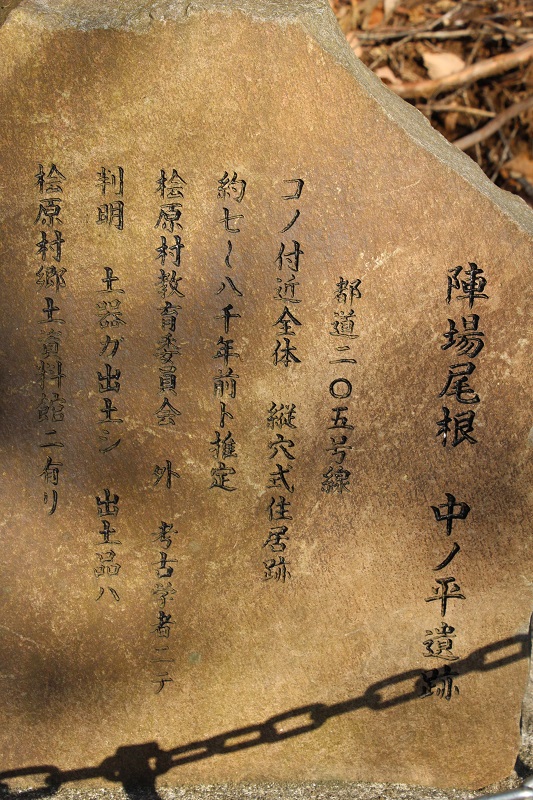 陣場尾根　中ノ平遺跡
都道二〇五号線
コノ付近全体　縦穴式住居跡
約七〜八千年前ト推定
桧原村教育委員会　外　考古学者ニテ
判明　土器ガ出土シ　出土品ハ
桧原村郷土資料館ニ有リ